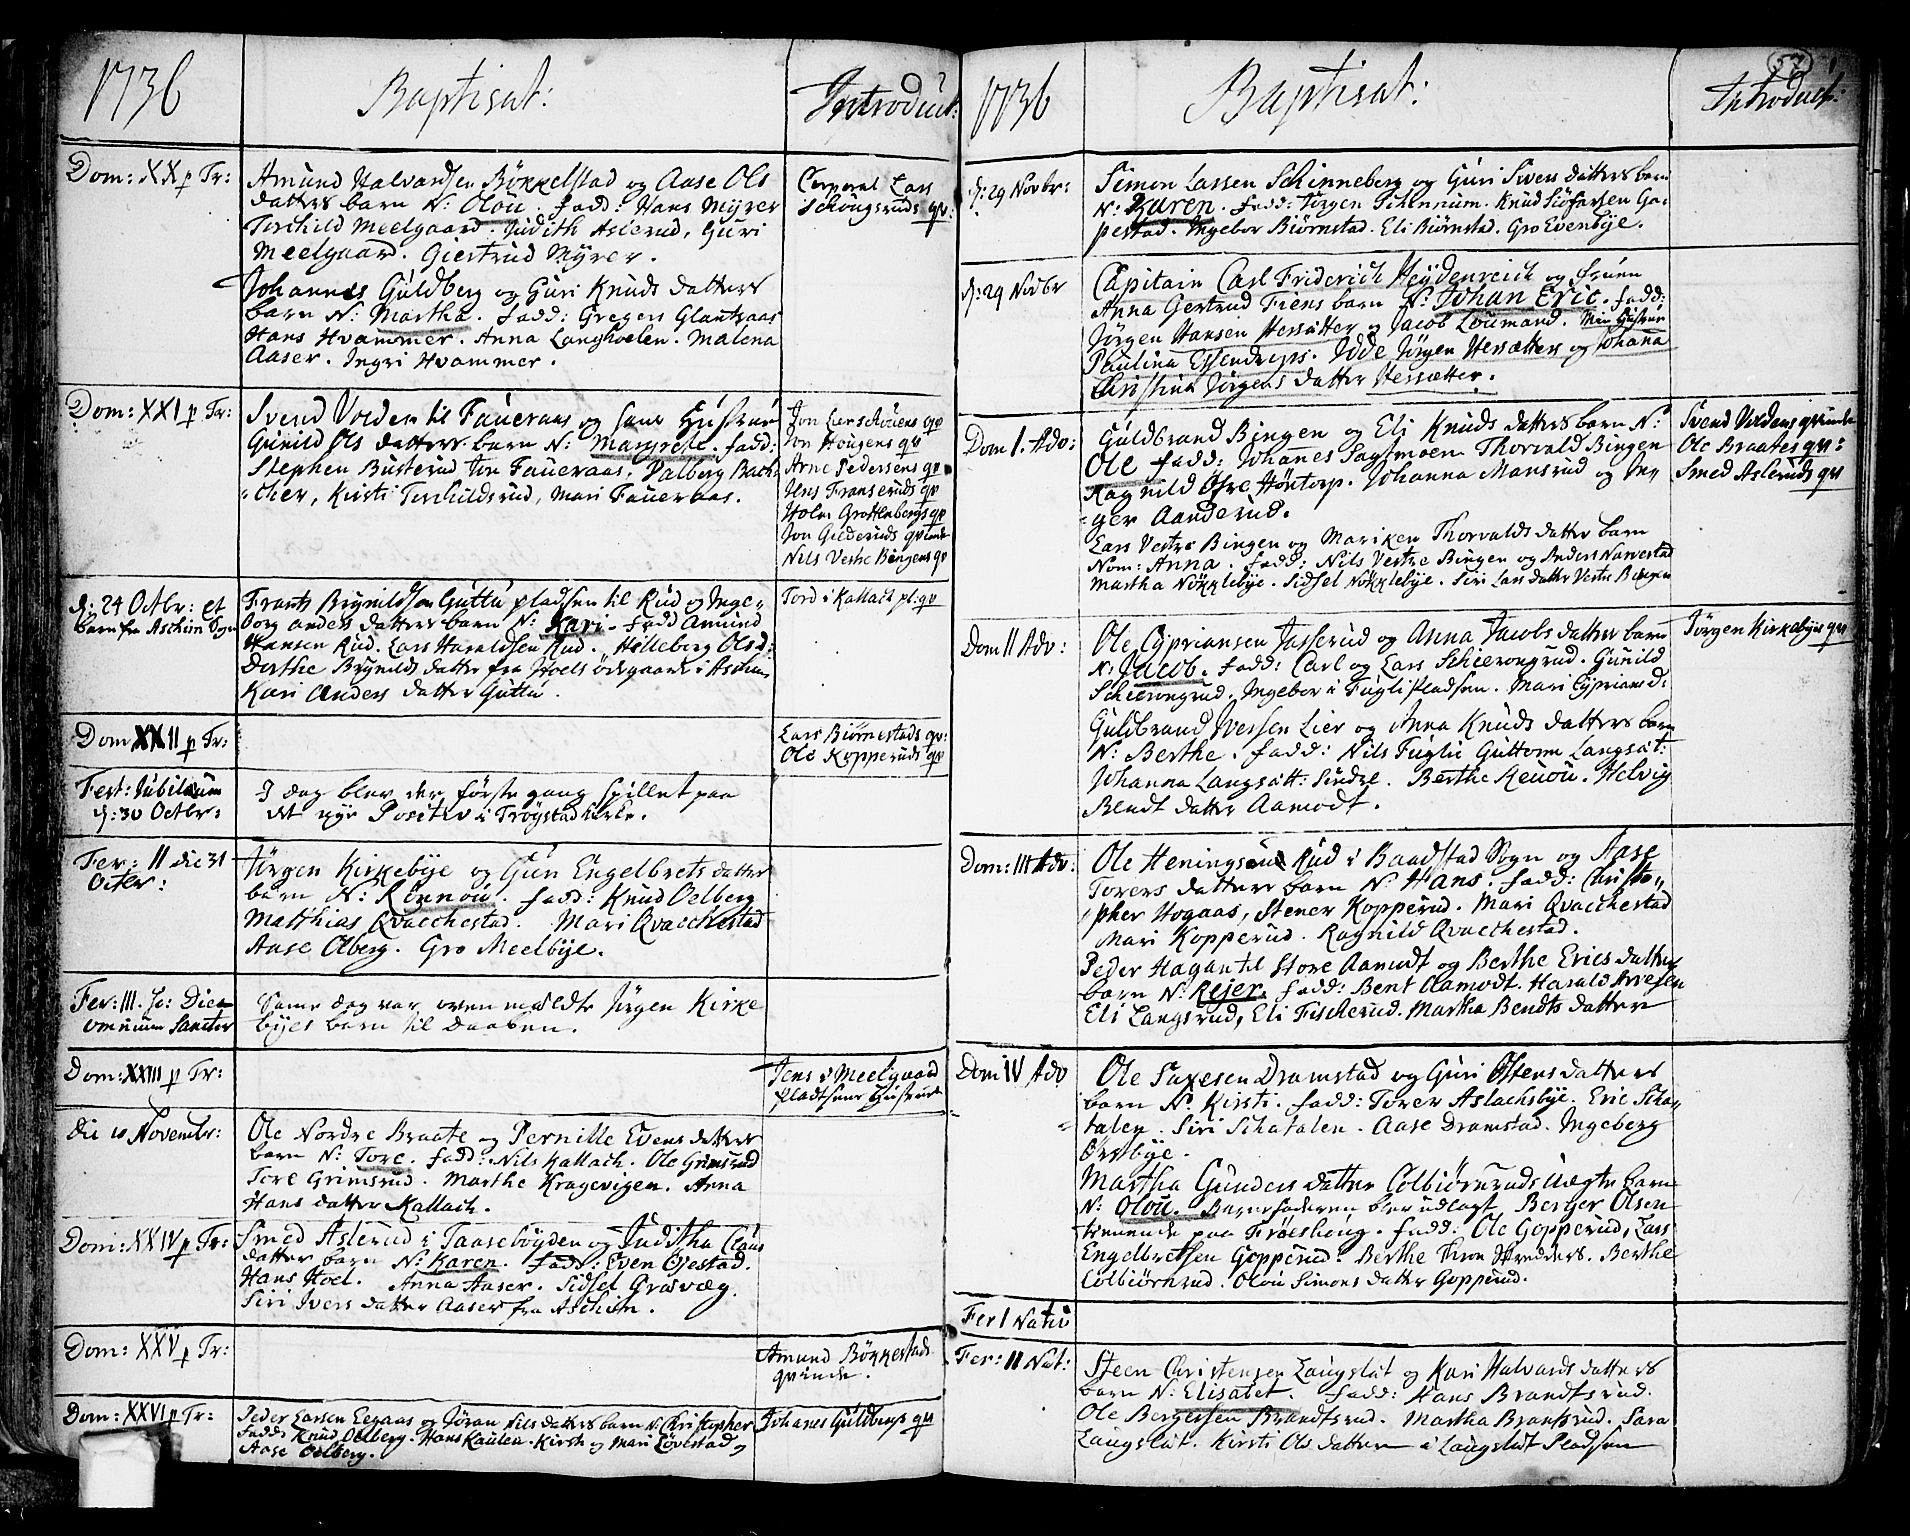 1736 Baptisat: Introduct:
Dom: XX p Tr: Amund Halvardsen Bøkkelstad og Aase Ols
datters barn N: Olou. fadd: Hans Myrer
Terchild Meelgaard. Judith Aslerud, Guri
Meelgaard. Giertrud Myrer.
Corporal Lars
Schougsruds qv:
Johannes Guldberg og Guri Knuds datters
barn N: Martha. fadd: Gregers Glantsaas
Hans Hvammer. Anna Langholen. Malena
Aaser. Ingri Hvammer.
Dom: XXI p Tr: Svend Volden til Faueraas og hans Hustrue
Gunild Ols datters barn N: Margrete. fadd:
Stephen Busterud Jon Faueraas. Dalberg Bach
cher, Kirsti Terchildsrud, Mari Faueraas.
Jon Larschouens qv
Jon Hougens qv
Arne Pedersens qv
Jens Franseruds qv
Holm Grottenbergs qv
Jon Gilderuds qvinde
Nils Vestre Bingens qv
d: 24 Octbr: et
barn fra Aschim Sogn
Frants Brynildsen Guttu pladsen til Rud og Inge-
borg Anders datters barn N: Kari. fadd Amund
Hansen Rud. Lars Haraldsen Rud. Helleborg Olsd:
Dorthe Brynilds datter fra Joels ødegaard i Aschim
Kari Anders datter Guttu.
Tord i Kallach pl: qv
Dom XXII p Tr:
Lars Biørnestads qv:
Ole Kopperuds qv
Fest: Jubilæum
d: 30 Octbr:
I dag blev der første gang spillet paa
det nye Positiv i Trøgstad kirke.
Fer: II die 31
Octbr:
Jørgen Kirkebye og Guri Engelbrets datter
barn N: Rønnou. fadd: Knud Oelberg
Matthias Qvacchestad. Mari Qvacchestad
Aase Olberg. Gro Meelbye.
Fer: III. p: Die
omnium Sanctor
Same dag var oven meldte Jørgen Kirke
byes barn til Daaben.
Dom: XXIII p Tr:
Jens i Meelgaard
pladsens Hustrue
die 10 Novembr:
Ole Nordre Braate og Pernille Evens datters
barn N: Tore. fadd: Nils Kallach. Ole Grimsrud
Tore Grimsrud. Marthe Kragevigen. Anna
Hans datter Kallach.
Dom: XXIV p Tr: Smed Aslerud i Taasebøyden og Juditha Claus
datter barn N: Karen. fadd: Even Oјestad.
Hans Hoel. Anna Aaser. Sidsel Grasvæg.
Siri Ivers datter Aaser fra Aschim.
Dom: XXV p Tr:
Amund Bøkkestads
qvinde.
Dom: XXVI p Tr: Peder Larsen Eegaas og Jøran Nils datters barn N: Christopher
fadd: Knud Oelberg. Hans Kaulen. Kirsti og Mari Løvestad,
Aase Oelberg.
Johanes Guldbergs qv
57
1736 Baptisat: Introduct:
d: 29 Novbr: Simon Lassen Schinneberg og Guri Svens datters barn
N: Karen. fadd: Jørgen Schennum. Knud Siøfarsen Ga-
pestad. Ingebor Biørnstad. Eli Biørnstad. Gro Evenbye.
d: 29 Novbr Capitain Carl Friderich Heydenreich og fruen
Anna Gertrud Fiens barn N: Johan Eric. fadd:
Jørgen Hansen Hersætter og Jacob Loumand. Min Hustrue
Paulina Essendrops. Jdde Jørgen Hersætters og Johana
Christina Jørgens datter Hersætter.
Dom I. Adv: Guldbrand Bingen og Eli Knuds datters barn N:
Ole fadd: Johanes Sagtmoen Thorvald Bingen
Ragnild Øfre Høntorp. Johanna Mansrud og In-
ger Aanderud.
Svend Voldens qvinde
Ole Braates qv:
Smed Asleruds qv
Lars Vestre Bingen og Mariken Thorvalds datter barn
Nom: Anna. fadd: Nils Vestre Bingen og Anders Narvestad
Martha Nøkklebye. Sidsel Nøkklebye. Siri Lars datter Vestre Bingen
Dom II Adv: Ole Cypriansen Jasserud og Anna Jacobs datter barn
N: Jacob. fadd: Carl og Lars Schierongrud. Gunild
Schierongrud, Ingebor i Fugli Pladsen. Mari Cyprians d:
Jørgen Kirkebyes qv
Guldbrand Iversen Lier og Anna Knuds datters barn
N: Berthe. fadd: Nils Fuglie Guttorm Langsæt:
Johanna Langsætt: Sindre. Berthe Renou. Helvig
Bendt datter Aamodt.
Dom: III Adv: Ole Heningsen Rud i Baadstad Sogn og Aase
Torers datters barn N: Hans. fadd: Christo-
pher Hogaas, Stener Kopperud. Mari Qvacchestad
Mari Kopperud. Ragnild Qvacchestad.
Peder Hagan til Store Aamodt og Berthe Erics datters
barn N: Rejer. fadd: Bent Aamodt. Harald Arvesen
Eli Langsrud, Eli Fischerud. Martha Bendts datter
Dom IV Adv Ole Saxesen Dramstad og Guri Ostens datters
barn N: Kirsti. fadd: Torer Aslachsbye. Eric Scha-
talen. Siri Schatalen. Aase Dramstad. Ingeborg
Ørstbye.
Martha Gunders datter Colbiørnruds uægte barn
N: Olou. Barnefaderen blev udlagt Berger Olsen
tienende paa Frøeshoug. fadd: Ole Gopperud, Lars
Engelbretsen Gopperud. Berthe Berthe
Colbiørnsrud. Olou Simons datter Gopperud.
Fer I Nativ
Fer: II Nat: Steen Christensen Langslut og Kari Halvards datters
barn N: Elisabet. fadd: Hans Brandtsrud.
Ole Bergersen Brandtsrud. Martha Brantsrud. Sara
Langslut. Kirsti Ols datter i Langslut Pladsen